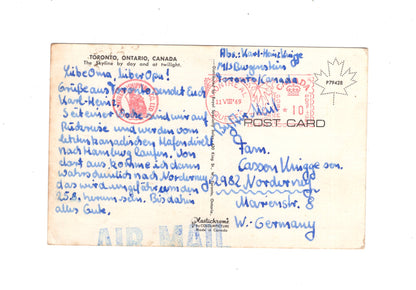 TORONTO, ONTARIO, CANADA
The Skyline by day and at twilight.
Liebe Oma, lieber Opa!
Grüße aus Toronto sendet Euch
Karl-Heinz.
Seit einer Woche sind wir auf
Rückreise und werden vom
letzten kanadischen Hafen direkt
nach Hamburg laufen. Von
dort aus komme ich dann
wahrscheinlich nach Norderney
das wird ungefähr um den
25.8. herum sein. Bis dahin
alles Gute.
AIR MAIL
Plastichrome
by COLOURPICTURE
Made in Canada
Abs: Karl-Heinz Knigge
M/S Burgenstein
Toronto Kanada
CANADA
11 VIII '69
10
P79425
By Air Mail
POST CARD
Fam.
Casson Knigge sen.
2982 Norderney
Marienstr. 8
W.-Germany